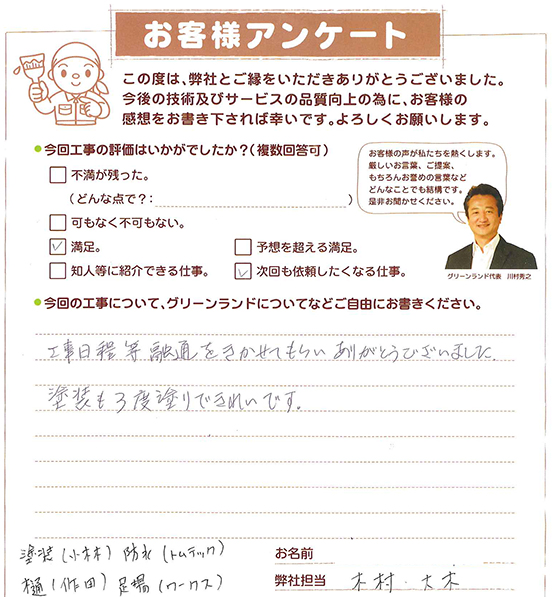 お客様アンケート
この度は、弊社とご縁をいただきありがとうございました。
今後の技術及びサービスの品質向上の為に、お客様の
感想をお書き下されば幸いです。よろしくお願いします。
●今回工事の評価はいかがでしたか?(複数回答可)
不満が残った。
(どんな点で?:                )
可もなく不可もない。
満足。
予想を超える満足。
知人等に紹介できる仕事。
次回も依頼したくなる仕事。
お客様の声が私たちを熱くします。
厳しいお言葉、ご提案、
もちろんお誉めの言葉など
どんなことでも結構です。
是非お聞かせください。
グリーンランド代表 川村秀之
●今回の工事について、グリーンランドについてなどご自由にお書きください。
工事日程等融通をきかせてもらいありがとうございました。
塗装も3度塗りできれいです。
塗装(小林) 防水(トムテック)
樋(作田) 足場(ワークス)
お名前
弊社担当 木村・大木